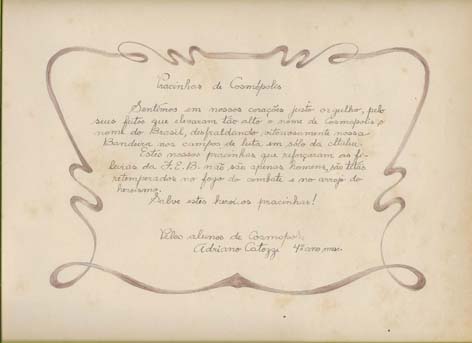 Pracinhas de Cosmópolis
Sentimos em nossos corações justo orgulho, pelo
seus feitos que elevaram tão alto o nome de Cosmopolis, o
nome do Brasil, desfraldando vitoriosamente nossa
Bandeira nos campos de luta em sólo da Itália.
Estes nossos pracinhas que reforçaram as fi-
leiras da F.E.B. não são apenas homens, são titãs
retemperados no fogo do combate e no arrojo do
heroismo.
Salve estes heroicos pracinhas!
Pelos alunos de Cosmopolis
Adriano Catozzi 4º ano,